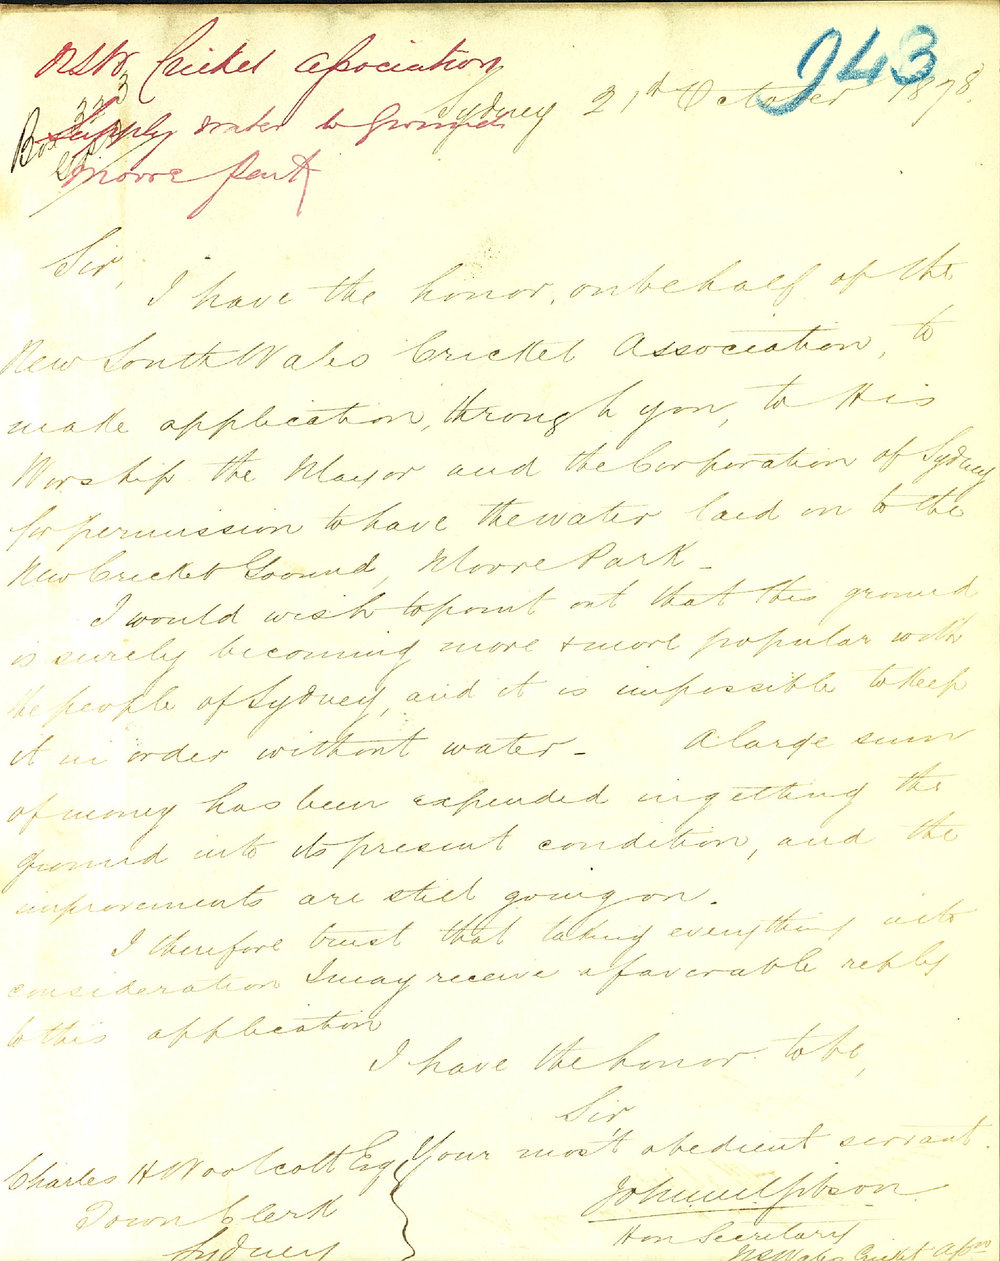 NSW Cricket Association
Supply water to Grounds
Moore Park
Box 323
943
Sydney 21st October 1878.
Sir,
I have the honor, on behalf of the
New South Wales Cricket Association, to
make application, through you, to His
Worship the Mayor and the Corporation of Sydney
for permission to have the water laid on to the
New Cricket Ground, Moore Park -
I would wish to point out that this ground
is surely becoming more & more popular with
the people of Sydney, and it is impossible to keep
it in order without water - A large sum
of money has been expended in getting the
ground into its present condition, and the
improvements are still going on.
I therefore trust that taking everything into
consideration I may receive a favorable reply
to this application
I have the honor to be,
Sir,
Your most obedient servant.
John M Gibson
Hon Secretary
N S Wales Cricket Assn
Charles H Woolcott Esq
Town Clerk
Sydney